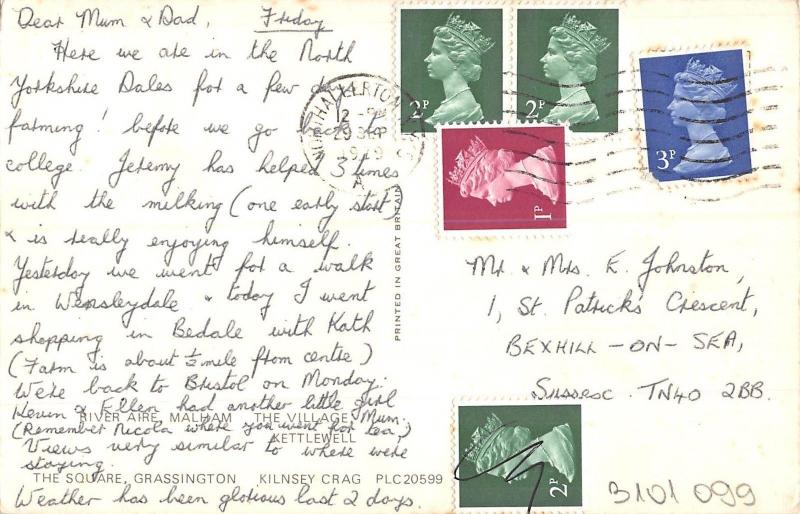 Dear Mum & Dad, Friday
Here we are in the North
Yorkshire Dales for a few days
farming! before we go back to
college. Jeremy has helped 3 times
with the milking (one early start)
& is really enjoying himself.
Yesterday we went for a walk
in Wensleydale & today I went
shopping in Bedale with Kath
(Farm is about ½ mile from centre)
We're back to Bristol on Monday.
Kevin & Ellen had another little girl
(Remember Nicola where you went for tea,) Mum.
Views very similar to where we're
staying.
Weather has been glorious last 2 days.
RIVER AIRE, MALHAM THE VILLAGE,
KETTLEWELL
THE SQUARE, GRASSINGTON KILNSEY CRAG PLC20599
PRINTED IN GREAT BRITAIN
2P
2P
3P
1P
Mr. & Mrs. E. Johnston,
1, St. Patrick's Crescent,
BEXHILL-ON-SEA,
Sussex. TN40 2BB.
2P
3101 099